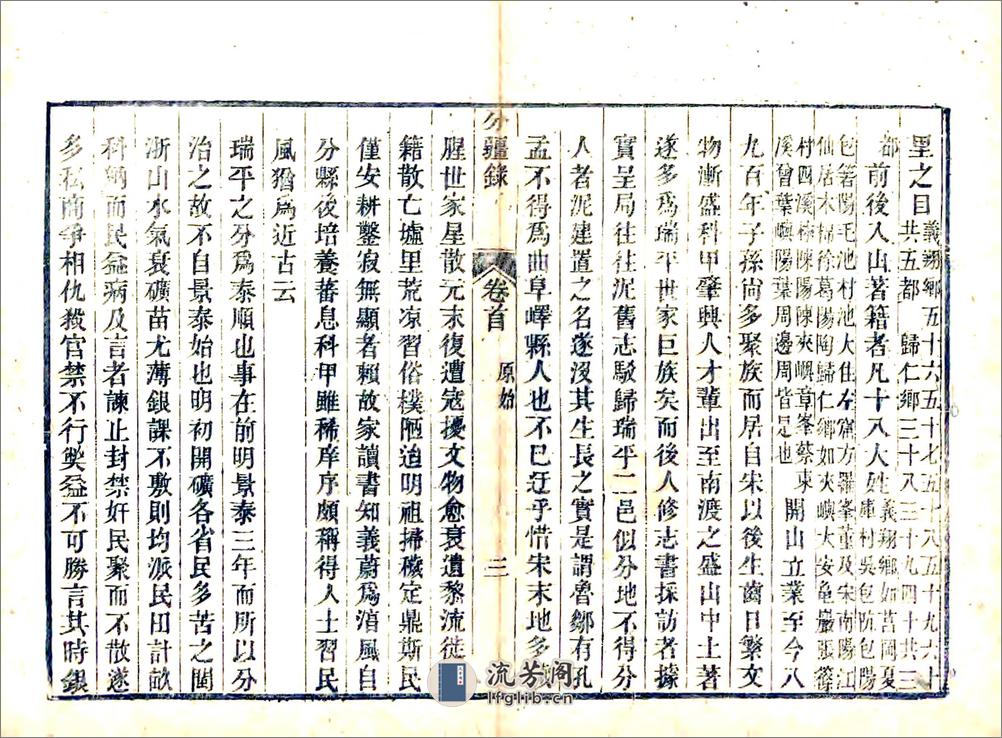 里之目
義翔鄉五十六五十七五十八五十九六十
共五都 歸仁鄉三十八三十九四十共三
都
前後入山著籍者凡十八大姓
義翔鄉如莒岡夏
庫村吳包防包陽
包箬陽毛池村池大住左窩方羅峯董及宋南陽江
仙居木棉徐葛陽陶歸仁鄉如夾嶼大安龜巖張篛
村四溪棟陳陽陳夾嶼章峯蔡東
溪曾葉嶼陽葉周邊周皆是也
開山立業至今八
九百年子孫尚多聚族而居自宋以後生齒日繁文
物漸盛科甲肇興人才輩出至南渡之盛山中土著
遂多為瑞平世家巨族矣而後人修志書採訪者據
實呈局往往泥舊志駁歸瑞平二邑似分地不得分
人者泥建置之名遂沒其生長之實是謂魯鄒有孔
孟不得為曲阜嶧縣人也不已迂乎惜宋末地多
分疆錄 卷首 原始 三
腥世家星散元末復遭寇擾文物愈衰遺黎流徙
籍散亡墟里荒凉習俗樸陋迨明祖掃穢定鼎斯民
僅安耕鑿寂無顯者賴故家讀書知義蔚為淳風自
分縣後培養蕃息科甲雖稀庠序頗稱得人士習民
風猶為近古云
瑞平之分為泰順也事在前明景泰三年而所以分
治之故不自景泰始也明初開礦各省民多苦之閩
浙山水氣衰礦苗尤薄銀課不敷則均派民田計畝
科納而民益病及言者諫止封禁奸民聚而不散遂
多私商爭相仇殺官禁不行獘益不可勝言其時銀
流芳阁
lfglib.cn